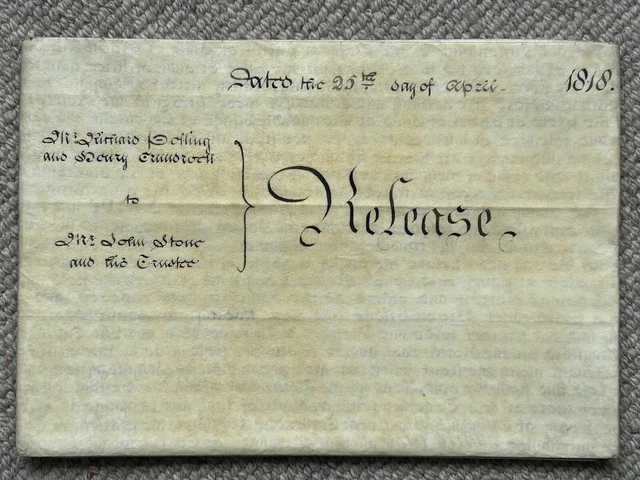 Dated the 25th day of April 1818.
Mr. Richard
and Henry
to
Mr. John Stone
and his Trustee
Release